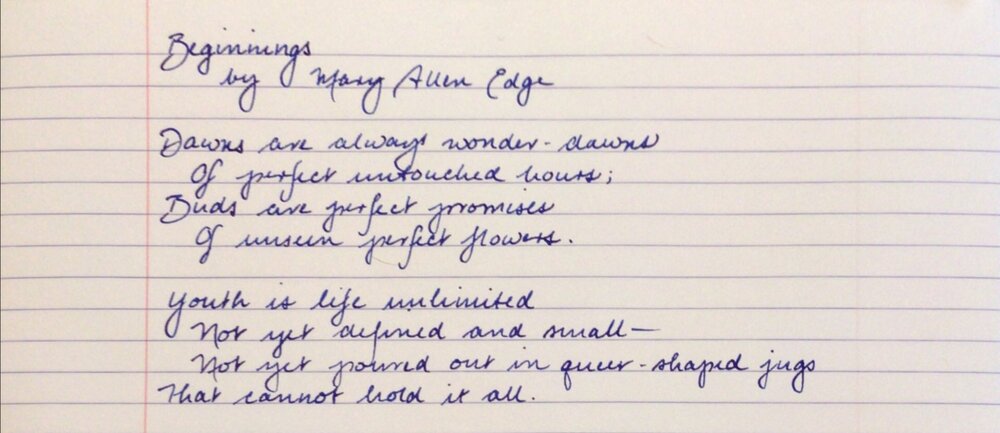 Beginnings
by Mary Allen Edge
Dawns are always wonder-dawns
Of perfect untouched hours;
Buds are perfect promises
Of unseen perfect flowers.
Youth is life unlimited
Not yet defined and small—
Not yet poured out in queer-shaped jugs
That cannot hold it all.